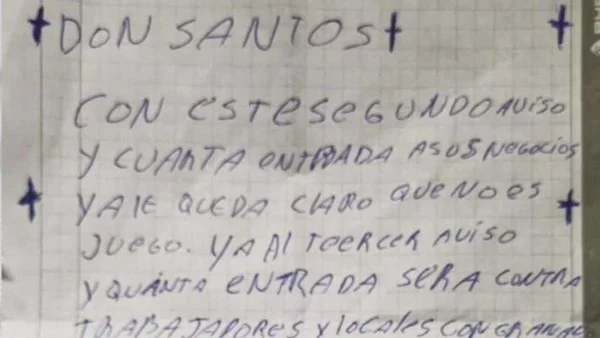 DON SANTOS
CON ESTE SEGUNDO AVISO
Y CUANTA ENTRADA A SUS NEGOCIOS
YA LE QUEDA CLARO QUE NO ES
JUEGO. YA AL TEERCER AVISO
Y QUANTA ENTRADA SERA CONTRA
TRABAJADORES Y LOCALES CON GRANAD